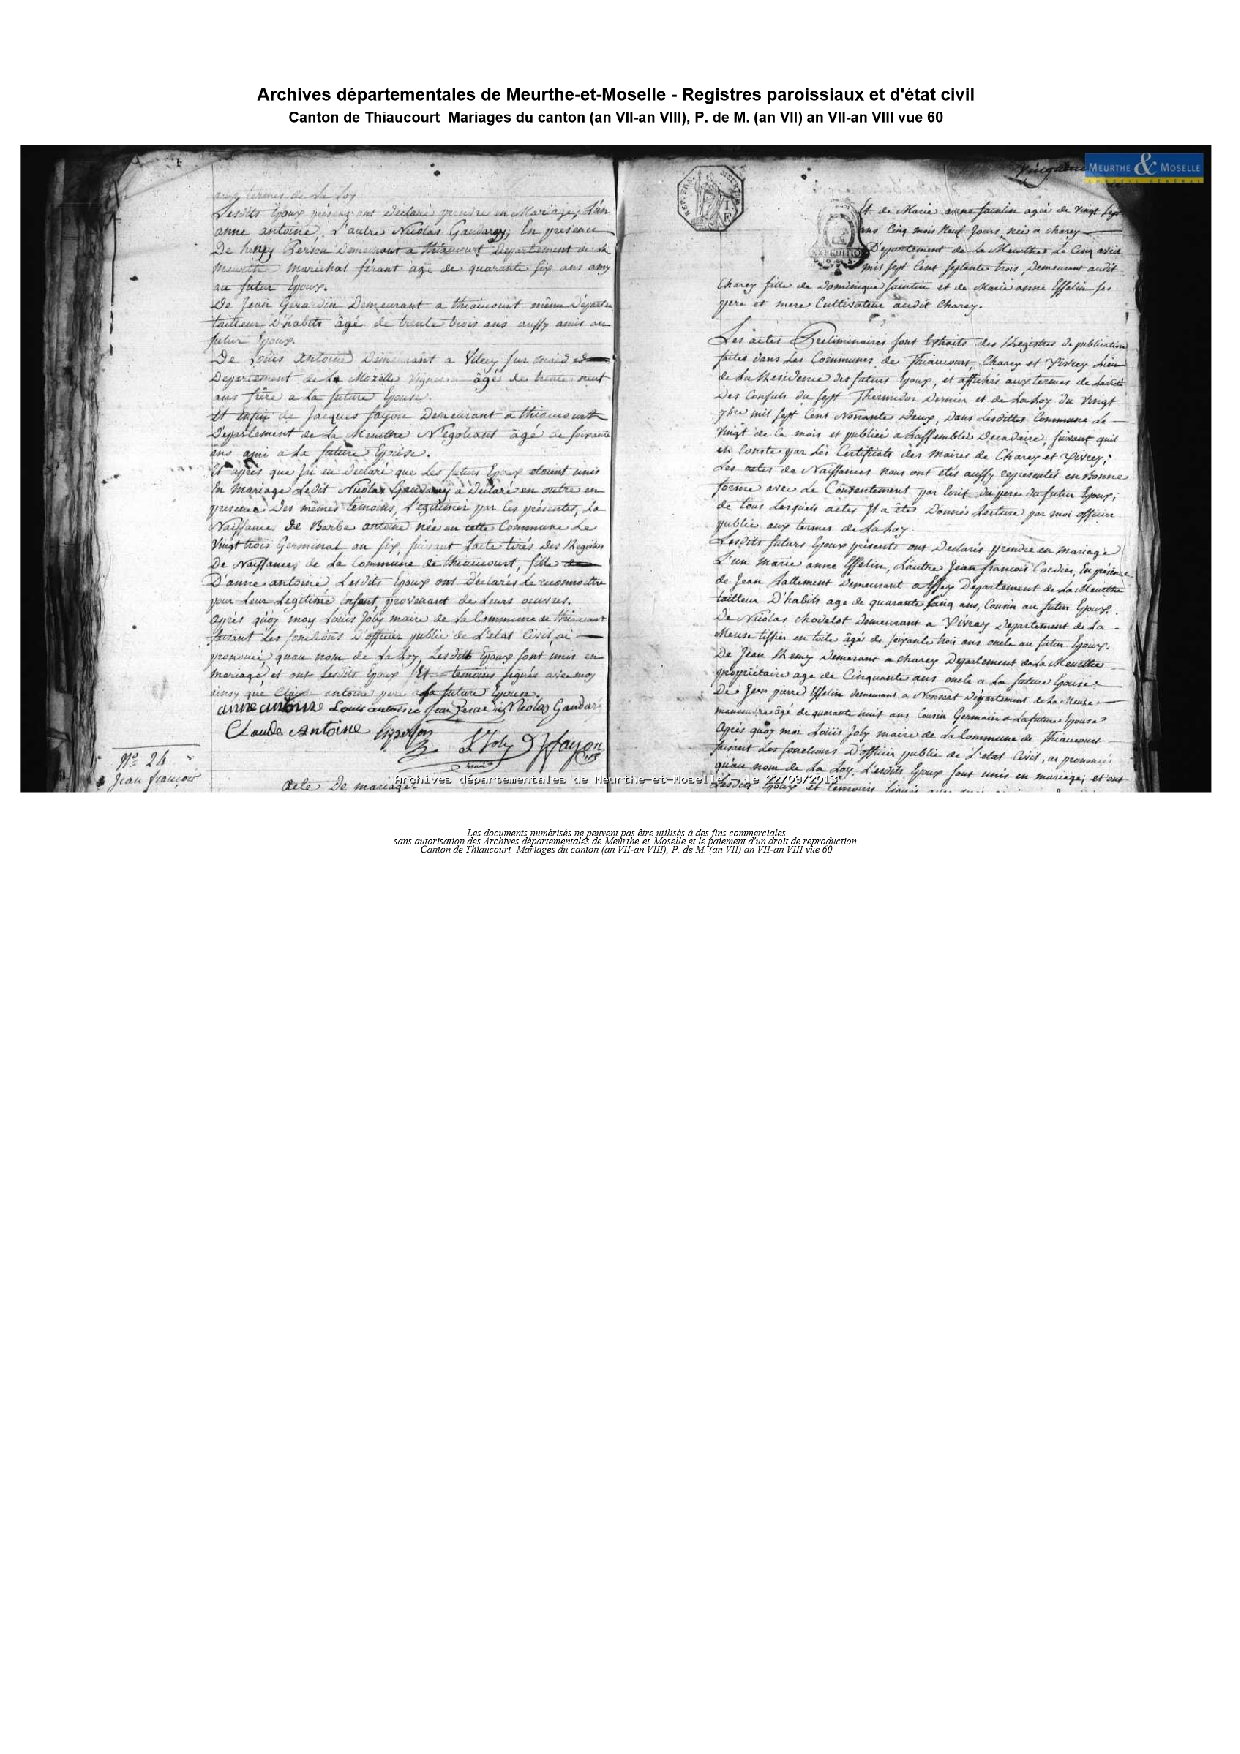 Archives départementales de Meurthe-et-Moselle - Registres paroissiaux et d'état civil
Canton de Thiaucourt Mariages du canton (an VII-an VIII), P. de M. (an VII) an VII-an VIII vue 60
MEURTHE & MOSELLE
aux termes de La Loy
Lesdits Epoux présens ont déclaré prendre en Mariage, L'un
anne antoine, L'autre Nicolas Gaudary, En présence
De Demeurant a thiaucourt Département de la
Meurthe maréchal férant age de quarante six ans amy
au futur Epoux.
De Jean Gerardin Demeurant a thiaucourt même Départe
tailleur D'habits âgé de trente trois ans aussy amis au
futur Epoux
De Louis Antoine Demeurant a
Departement de La Mozelle Vigneron âgé de trente neuf
ans frère a La future Epouse
Et enfin de Jacques fayon Demeurant a thiaucourt
Departement de La Meurthe Négotiant âgé de soixante
ans ami a La future Epouse.
Et après que j'ai eu déclaré que Les futurs Epoux étoient unis
En mariage Ledit Nicolas Gaudary a Déclaré en outre en
presence Des mêmes temoins, Légitimer par les présentes, La
Naissance de Barbe antoine née en cette Commune Le
Vingt trois Germinal an six, suivant L'acte tirés des Registres
de Naissances de La Commune de thiaucourt, fille
D'anne antoine Lesdits Epoux ont déclarés Le reconnoitre
pour Leur Legitime Enfant provenant de Leurs oeuvres.
après quoy moy Louis Joly maire de La Commune de thiaucourt
faisant Les fonctions D'officier public de L'etat Civil, ai
prononcé qu'au nom de La Loy, Lesdits Epoux sont unis en
mariage, et ont Lesdits Epoux Et temoins signés avec moy
ainsy que Claude antoine pere a La future Epouse.
anne antoine Louis antoine Nicolas Gaudar
Claude Antoine L Joly J fayon
N° 24
Jean françois
Acte De mariage
Et de Marie anne agée de Vingt sept
ans Cinq mois neuf Jours, née a charey
Département de la Meurthe Le Cinq
mil sept Cent septante trois, Demeurant audit
Charey fille de Dominique et de Marie anne ses
pere et mere Cultivateur audit Charey.
Les actes Preliminaires sont Extraits des Registres de publication
faites dans Les Communes de Thiaucourt, Charey et Vivrey Lieu
de La Residence des futurs Epoux, et affichés aux termes de
Des Consuls du sept Thermidor Dernier et de La Loy du Vingt
7bre mil sept Cent Nonante Deux, Dans Lesdittes Commune Le
Vingt de Ce mois et publiés a L'assemblée Decadaire, suivant qu'il
En Conste par Les Certificats des maires de Charey et Vivrey;
Les actes de Naissances nous ont étés aussy representés en Bonne
forme avec Le Consentement par Ecrit du pere du futur Epoux;
de tous Lesquels actes Il a étés Donnés Lecture par moi officier
public aux termes de La Loy.
Lesdits futurs Epoux présents ont Déclarés prendre en mariage
L'un marie anne, L'autre Jean francois
de Jean Lallement Demeurant a Essey Departement de La Meurthe
tailleur D'habits age de quarante Cinq ans, Cousin au futur Epoux.
De Nicolas chodelot Demeurant a Vivrey Departement de La
Meuse tissier en toile âgé de soixante trois ans oncle au futur Epoux.
De Jean Remy Demeurant a charey Departement de La Meurthe
propriétaire age de Cinquante ans oncle a La future Epouse.
De Jean pierre demeurant a Nonsart Departement de La Meuse
manoeuvre âgé de quarante huit ans Cousin Germain a La future Epouse
Après quoy moi Louis Joly maire de la Commune de Thiaucourt
faisant Les fonctions D'officier public de L'etat Civil, ai prononcé
qu'au nom de La Loy, Lesdits Epoux sont unis en mariage, et ont
Lesdits Epoux et temoins signés avec
Archives départementales de Meurthe-et-Moselle - le 22/09/2013
Les documents numérisés ne peuvent pas être utilisés à des fins commerciales
sans autorisation des Archives départementales de Meurthe et Moselle et le paiement d'un droit de reproduction
Canton de Thiaucourt Mariages du canton (an VII-an VIII), P. de M. (an VII) an VII-an VIII vue 60